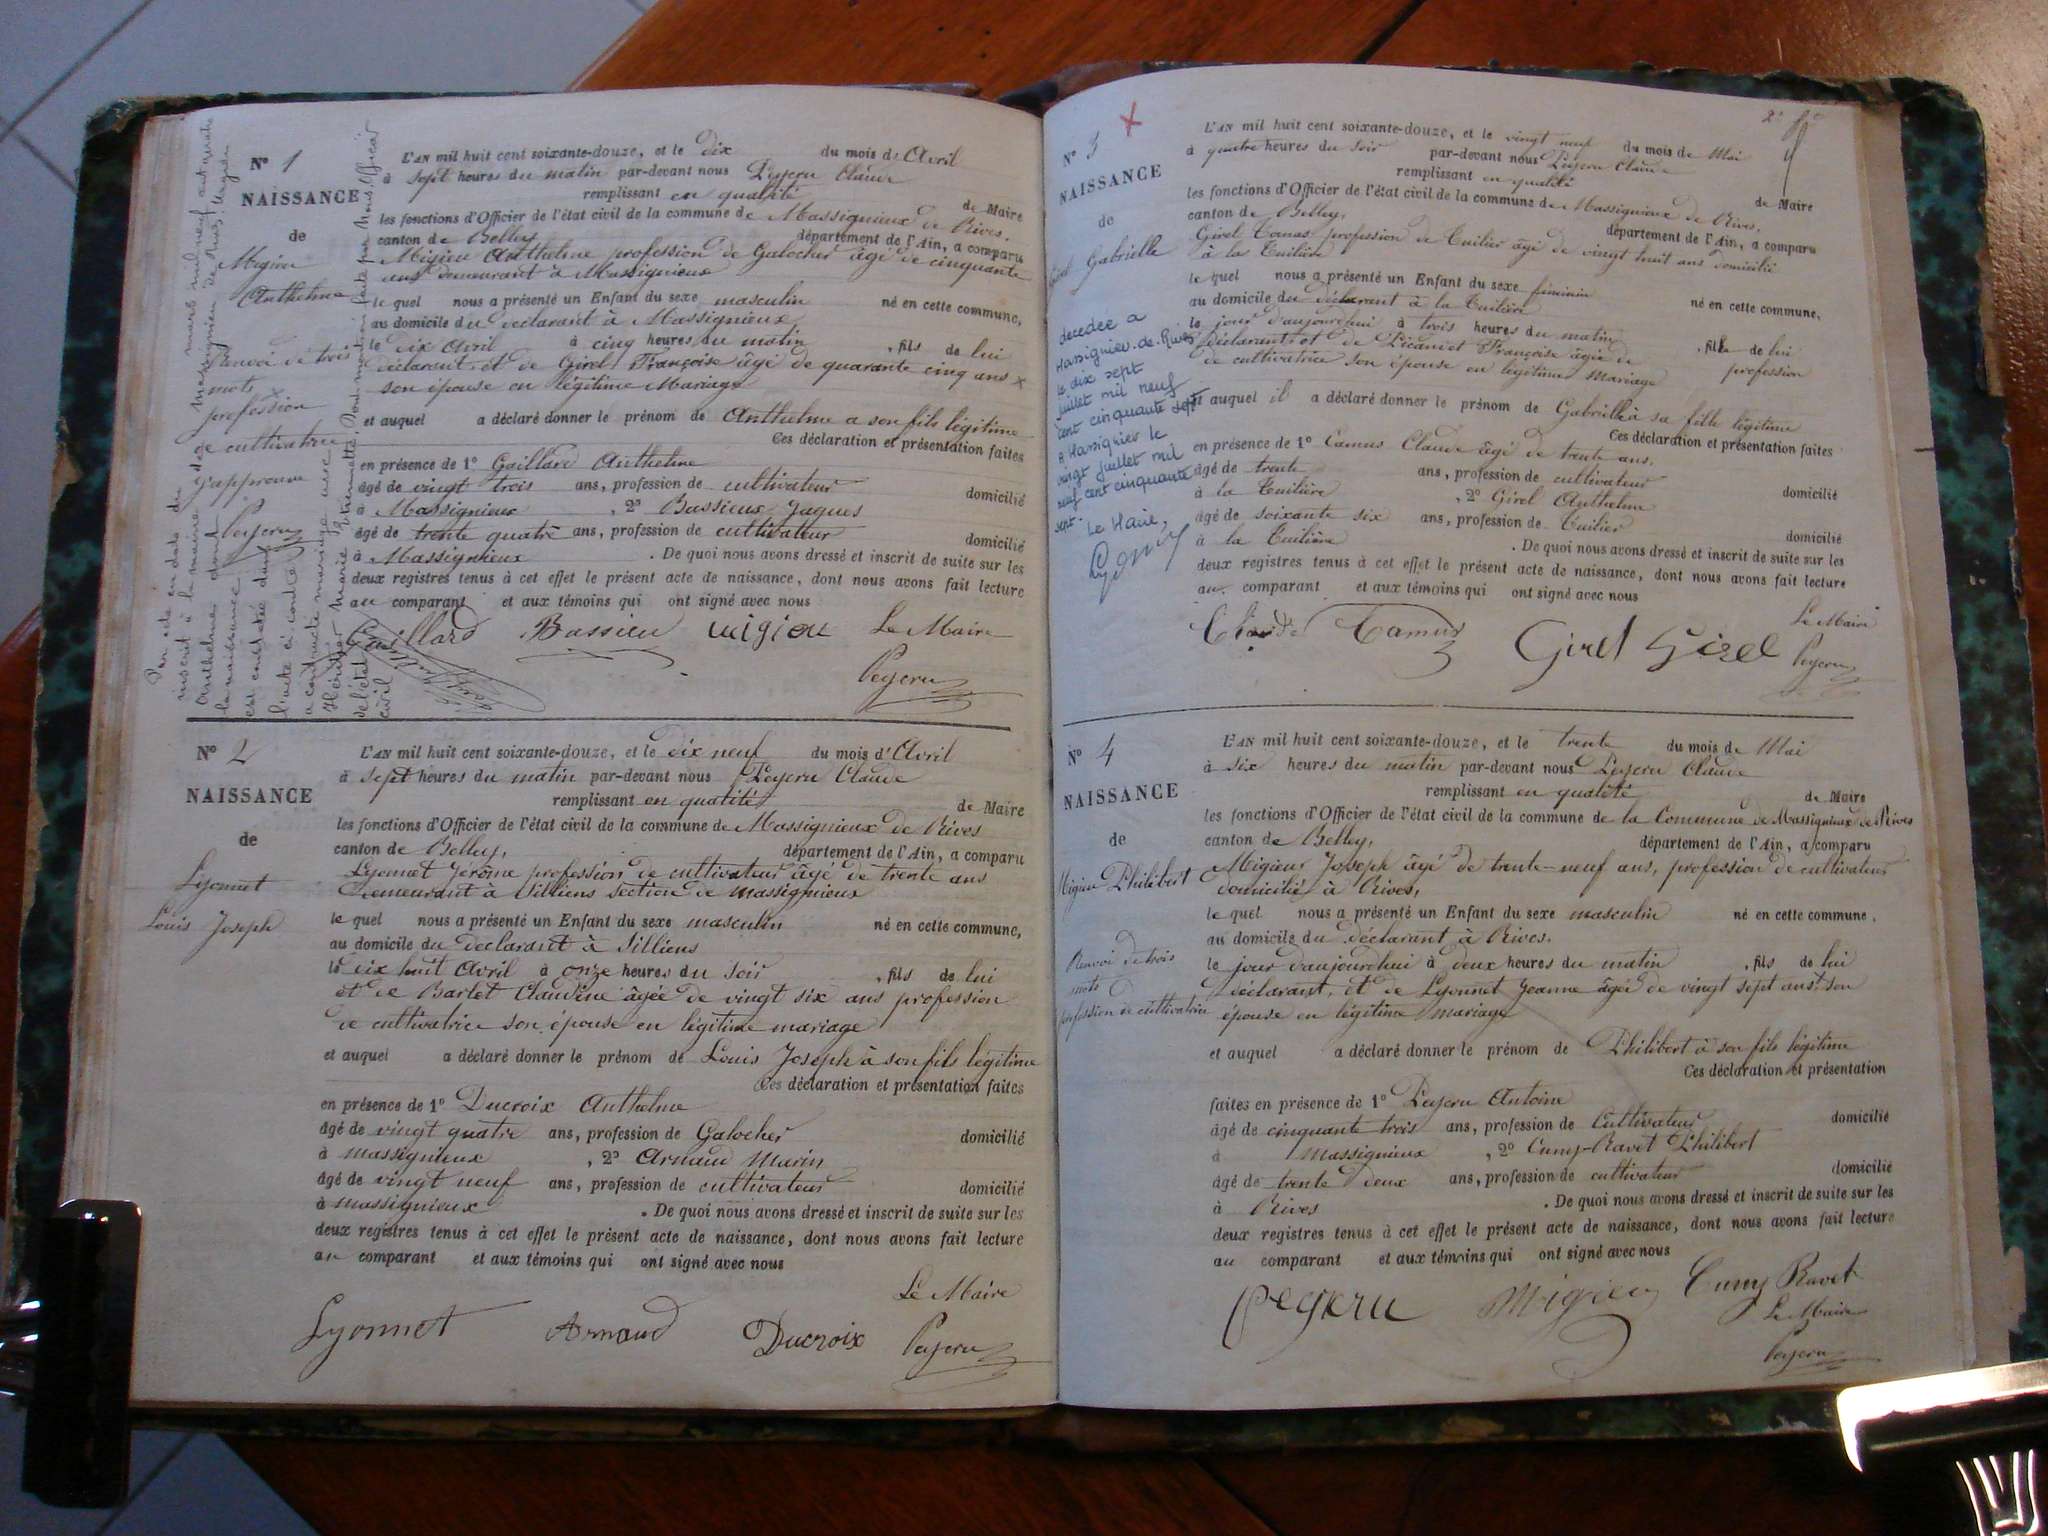 N° 1
NAISSANCE
de
Migieu
Anthelme
Renvoi de trois
mots
profession
de cultivatrice
j'approuve
Peyeru
L'AN mil huit cent soixante-douze, et le dix du mois d'Avril
à sept heures du matin par-devant nous Peyeru Claude
remplissant en qualité de Maire
les fonctions d'Officier de l'état civil de la commune de Massignieux de Rives.
canton de Belley département de l'Ain, a comparu
Migieu Anthelme profession de Galocher âgé de cinquante
ans demeurant à Massignieux
le quel nous a présenté un Enfant du sexe masculin né en cette commune,
au domicile du déclarant à Massignieux
le dix Avril à cinq heures du matin, fils de lui
déclarant et de Girel Françoise âgé de quarante cinq ans x
son épouse en légitime Mariage
et auquel a déclaré donner le prénom de Anthelme a son fils légitime
Ces déclaration et présentation faites
en présence de 1° Gaillard Anthelme
âgé de vingt trois ans, profession de cultivateur domicilié
à Massignieux, 2° Bassieux Jaques
âgé de trente quatre ans, profession de cultivateur domicilié
à Massignieux. De quoi nous avons dressé et inscrit de suite sur les
deux registres tenus à cet effet le présent acte de naissance, dont nous avons fait lecture
au comparant et aux témoins qui ont signé avec nous
Gaillard Bassieu migieu Le Maire
Peyeru
N° 2
NAISSANCE
de
Lyonnet
Louis Joseph
L'AN mil huit cent soixante-douze, et le dix neuf du mois d'Avril
à sept heures du matin par-devant nous Peyeru Claude
remplissant en qualité de Maire
les fonctions d'Officier de l'état civil de la commune de Massignieux de Rives
canton de Belley, département de l'Ain, a comparu
Lyonnet Jérôme profession de cultivateur âgé de trente ans
demeurant à Silliens section de massignieux
le quel nous a présenté un Enfant du sexe masculin né en cette commune,
au domicile du déclarant à Silliens
le dix huit Avril à onze heures du soir, fils de lui
et de Bartet Claudine âgée de vingt six ans profession
de cultivatrice son épouse en légitime mariage
et auquel a déclaré donner le prénom de Louis Joseph à son fils légitime
Ces déclaration et présentation faites
en présence de 1° Ducroix Anthelme
âgé de vingt quatre ans, profession de Galocher domicilié
à massignieux, 2° Arnaud Marin
âgé de vingt neuf ans, profession de cultivateur domicilié
à massignieux. De quoi nous avons dressé et inscrit de suite sur les
deux registres tenus à cet effet le présent acte de naissance, dont nous avons fait lecture
au comparant et aux témoins qui ont signé avec nous
Le Maire
Lyonnet Arnaud Ducroix Peyeru
2°
N° 3
NAISSANCE
de
Girel Gabrielle
décédée a
Massignieu-de-Rives
le dix sept
juillet mil neuf
cent cinquante sept
A Massignieu le
vingt juillet mil
neuf cent cinquante
sept.
Le Maire,
L'AN mil huit cent soixante-douze, et le vingt neuf du mois de Mai
à quatre heures du soir par-devant nous Peyeru Claude
remplissant en qualité de Maire
les fonctions d'Officier de l'état civil de la commune de Massignieux de Rives,
canton de Belley, département de l'Ain, a comparu
Girel Tomas profession de Tuilier âgé de vingt huit ans domicilié
à la Tuilière
le quel nous a présenté un Enfant du sexe féminin né en cette commune,
au domicile du déclarant à la Tuilière
le jour d'aujourd'hui à trois heures du matin, fille de lui
déclarant et de Picandet Françoise âgée de profession
de cultivatrice son épouse en légitime mariage
et auquel il a déclaré donner le prénom de Gabrielle à sa fille légitime
Ces déclaration et présentation faites
en présence de 1° Camus Claude âgé de trente ans.
âgé de trente ans, profession de cultivateur domicilié
à la Tuilière, 2° Girel Anthelme
âgé de soixante six ans, profession de Tuilier domicilié
à la Tuilière. De quoi nous avons dressé et inscrit de suite sur les
deux registres tenus à cet effet le présent acte de naissance, dont nous avons fait lecture
au comparant et aux témoins qui ont signé avec nous
Le Maire
Claude Camus Girel Girel Peyeru
N° 4
NAISSANCE
de
Migieu Philibert
Renvoi de trois
mots
profession de cultivatrice
L'AN mil huit cent soixante-douze, et le trente du mois de Mai
à six heures du matin par-devant nous Peyeru Claude
remplissant en qualité de Maire
les fonctions d'Officier de l'état civil de la commune de la Commune de Massignieux de Rives
canton de Belley, département de l'Ain, a comparu
Migieux Joseph âgé de trente-neuf ans, profession de cultivateur
domicilié à Rives,
le quel nous a présenté un Enfant du sexe masculin né en cette commune,
au domicile du déclarant à Rives.
le jour d'aujourd'hui à deux heures du matin, fils de lui
déclarant, et de Lyonnet Jeanne âgée de vingt sept ans son
épouse en légitime mariage
et auquel a déclaré donner le prénom de Philibert à son fils légitime
Ces déclaration et présentation
faites en présence de 1° Peyeru Antoine
âgé de cinquante trois ans, profession de Cultivateur domicilié
à Massignieux, 2° Cuny-Ravet Philibert
âgé de trente deux ans, profession de cultivateur domicilié
à Rives. De quoi nous avons dressé et inscrit de suite sur les
deux registres tenus à cet effet le présent acte de naissance, dont nous avons fait lecture
au comparant et aux témoins qui ont signé avec nous
Peyeru Migieu Cuny Ravet
Le Maire
Peyeru